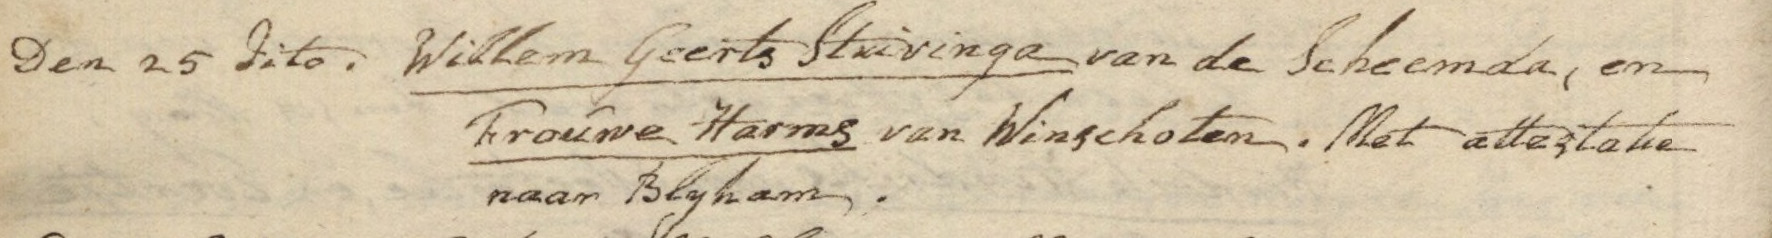 Den 25 dito. Willem Geerts Stuivinga van de Scheemda, en
Frouwe Harms van Winschoten. Met attestatie
naar Blyham.